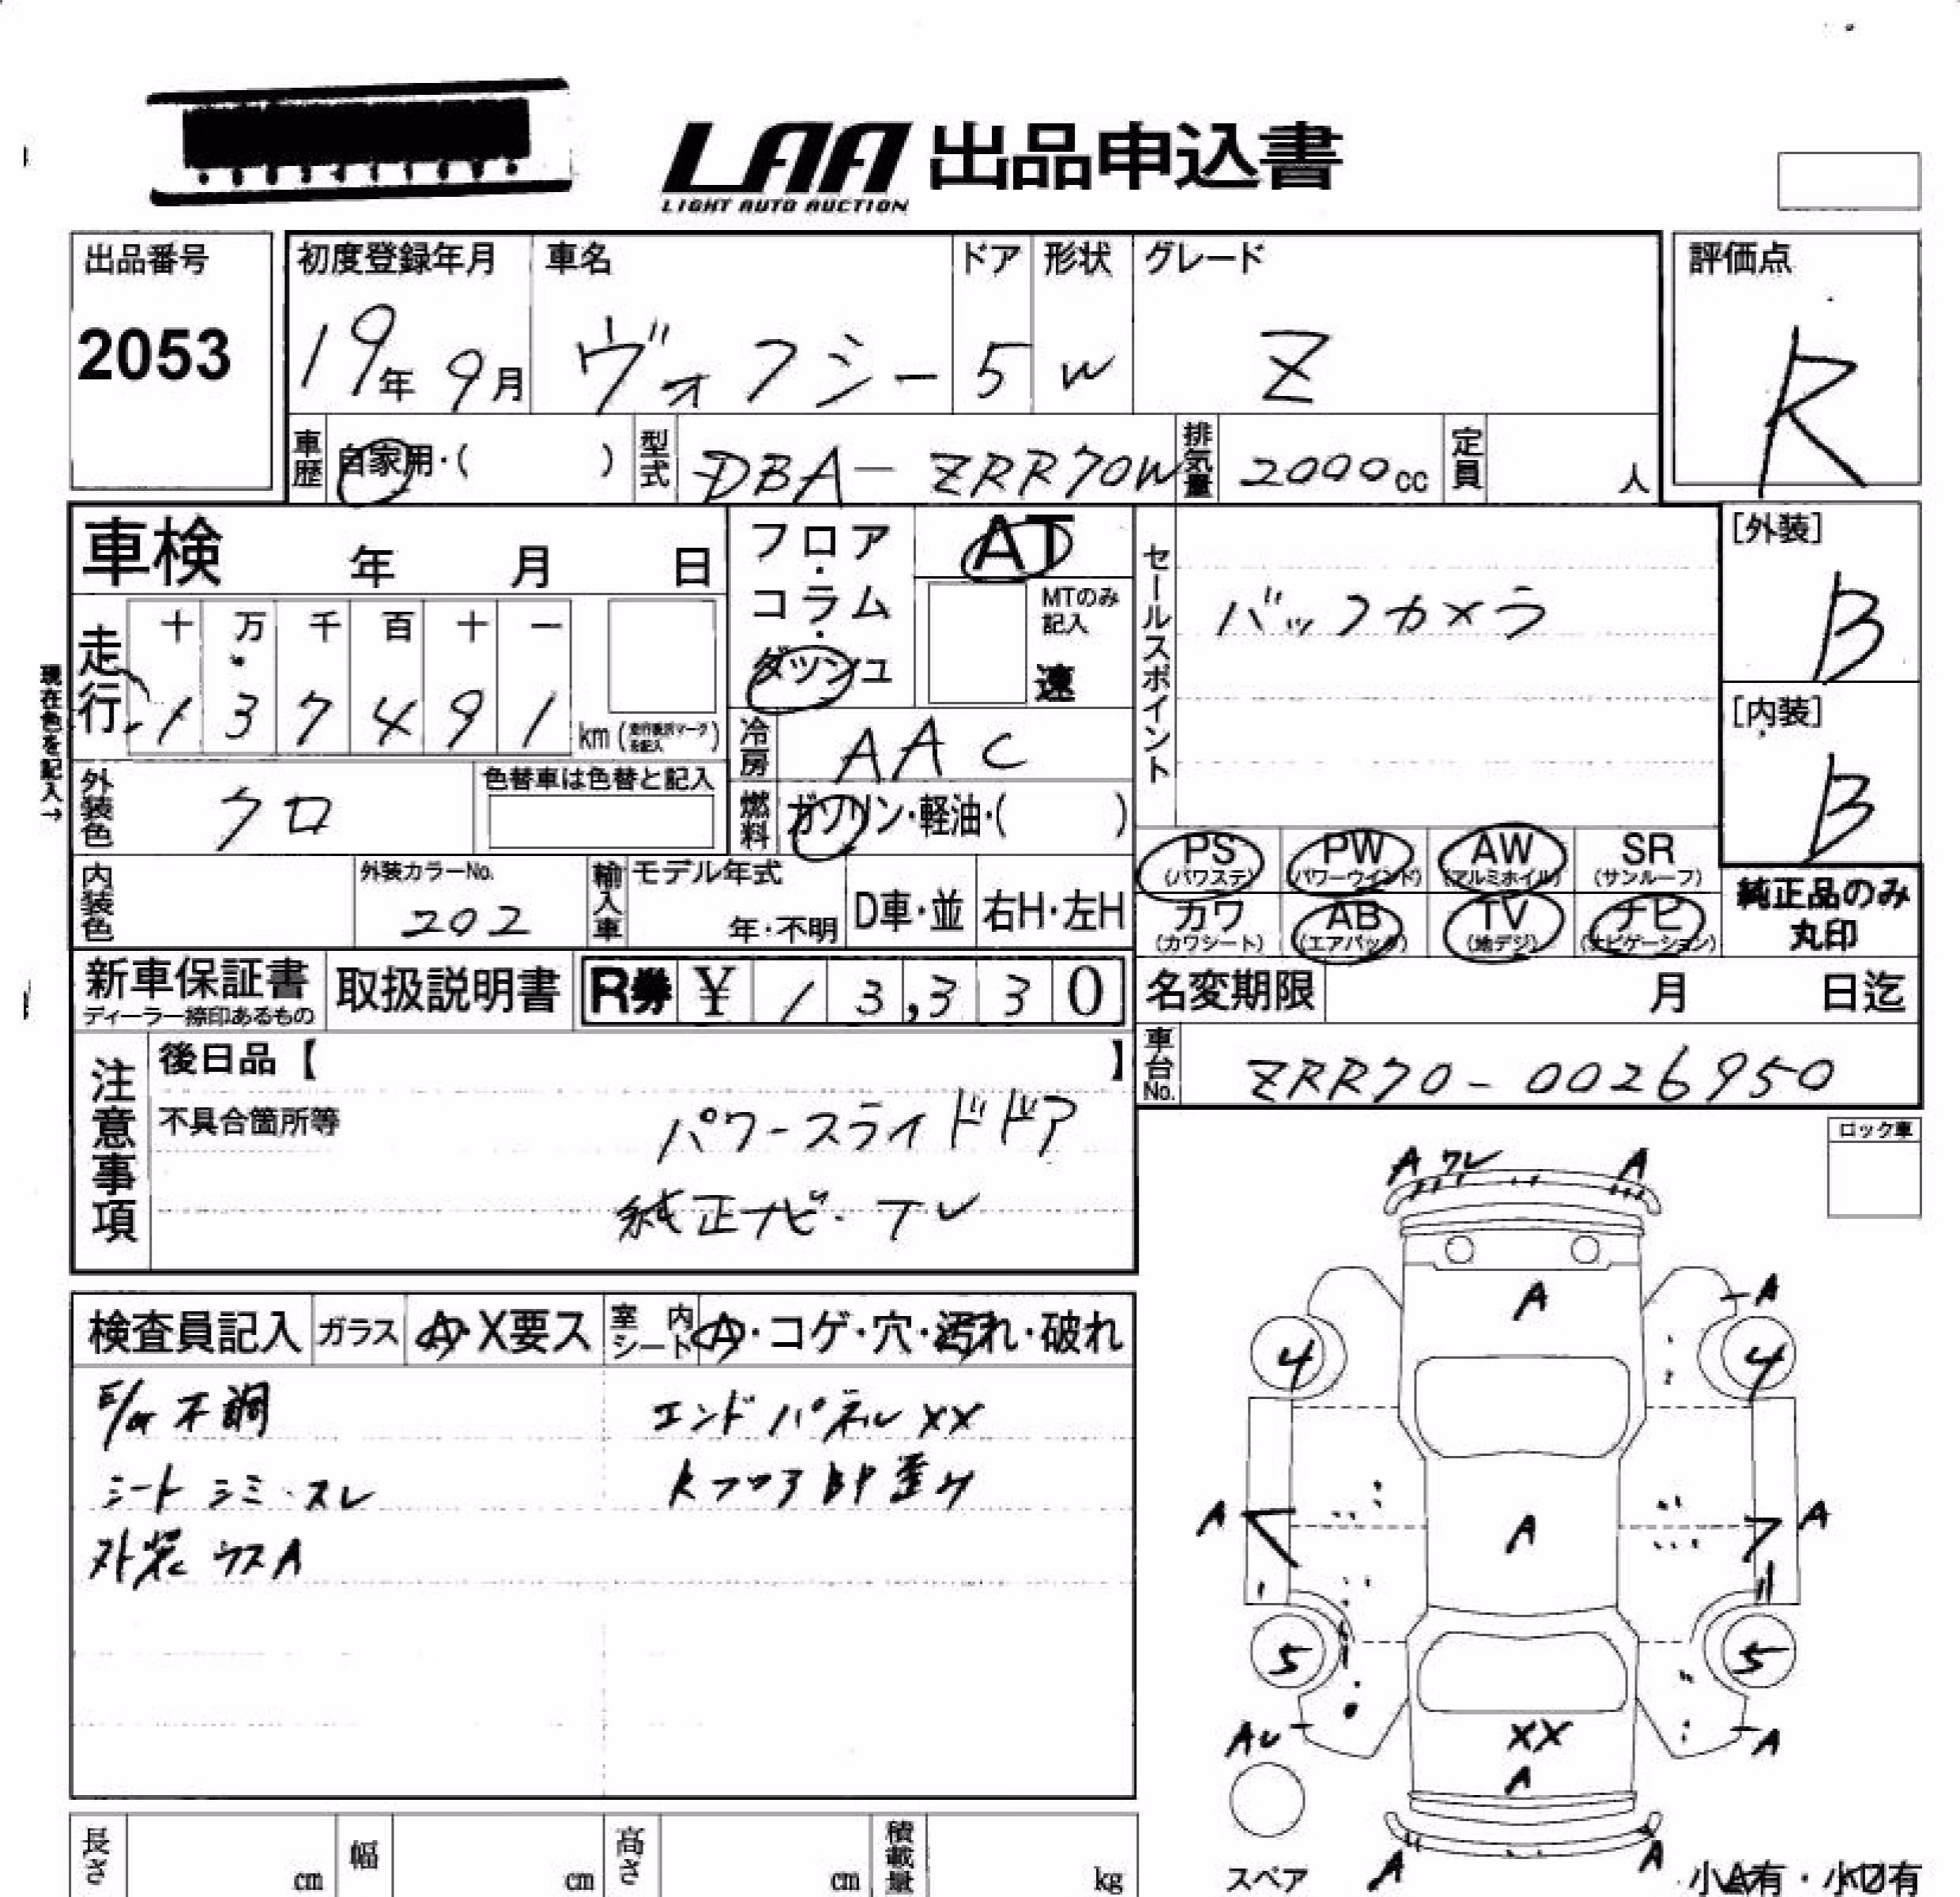 LAA 出品申込書
LIGHT AUTO AUCTION
出品番号
2053
初度登録年月
19年 9月
車名
ヴォクシー
ドア
5
形状
W
グレード
Z
評価点
R
車歴
自家用・( )
型式
DBA-ZRR70W
排気量
2000cc
定員
人
車検 年 月 日
フロア・コラム・ダッシュ
AT
MTのみ記入
速
セールスポイント
バックカメラ
[外装]
B
[内装]
B
現在色を記入→
走行
十 万 千 百 十 一
1 3 7 4 9 1 km
冷房
AAC
外装色
クロ
色替車は色替と記入
燃料
ガソリン・軽油・( )
PS (パワステ)
PW (パワーウインド)
AW (アルミホイル)
SR (サンルーフ)
カワ (カワシート)
AB (エアバック)
TV (地デジ)
ナビ (ナビゲーション)
純正品のみ丸印
内装色
外装カラーNo.
202
輸入車
モデル年式
年・不明
D車・並
右H・左H
新車保証書
ディーラー捺印あるもの
取扱説明書
R券 ¥ 13,330
名変期限 月 日迄
車台No.
ZRR70-0026950
注意事項
後日品【 】
不具合箇所等
パワースライドドア
純正ナビ・TV
ロック車
検査員記入
ガラス
A・X要ス
室内シート
A・コゲ・穴・汚れ・破れ
不調
エンドパネルXX
シート シミ・スレ
歪み
外装 ウスA
A ワレ A
A A
4 4
A A A
5 5
AU XX A
A
A A
スペア
小A有・小U有
長さ cm
幅 cm
高さ cm
積載量 kg